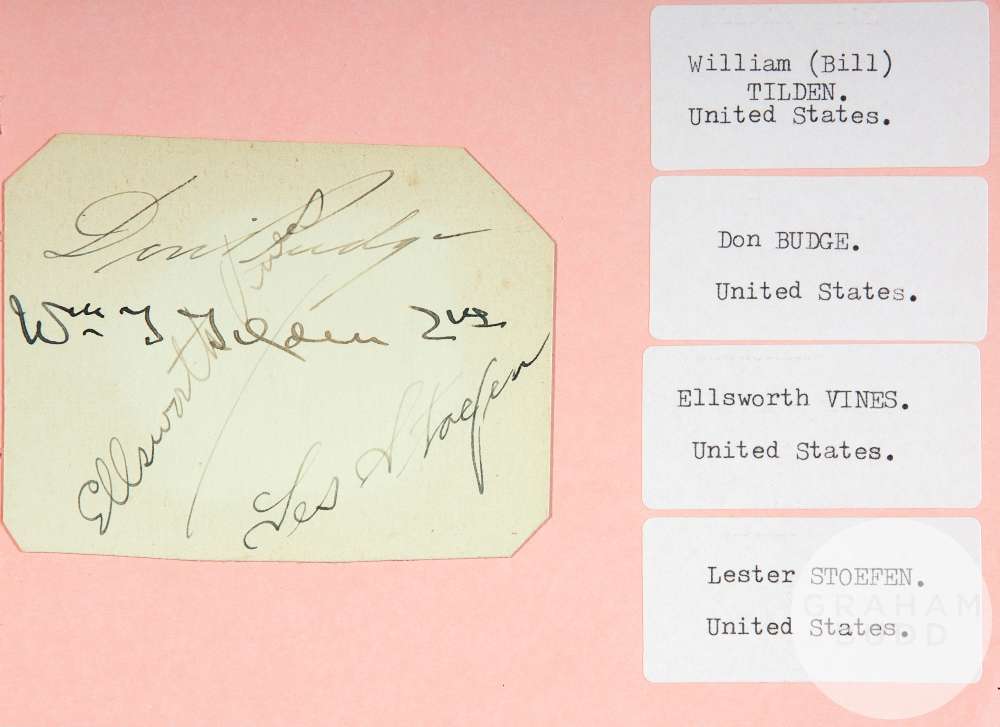 Don Budge
Wm T Tilden 2nd
Ellsworth Vines
Les Stoefen
William (Bill)
TILDEN.
United States.
Don BUDGE.
United States.
Ellsworth VINES.
United States.
Lester STOEFEN.
United States.
GRAHAM
BUDD